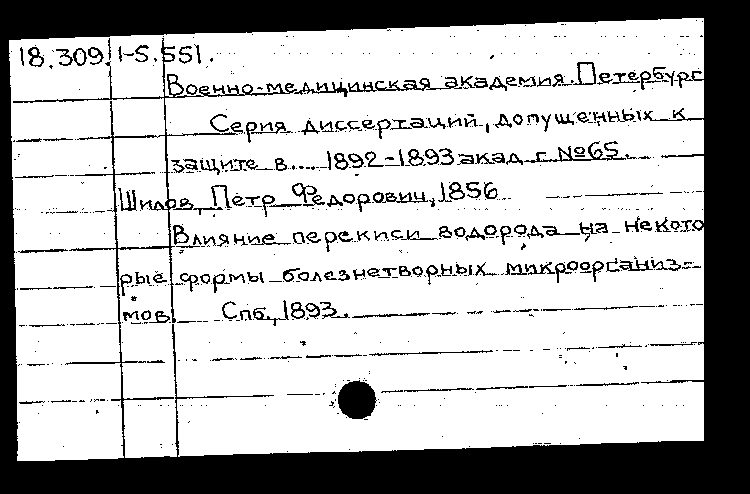 18.309. I-5.551.
Военно-медицинская академия. Петербург
Серия диссертаций, допущенных к
защите в.... 1892-1893 акад. г. №65.
Шилов, Пётр Федорович, 1856
Влияние перекиси водорода на некото
рые формы болезнетворных микроорганиз-
мов. Спб., 1893.